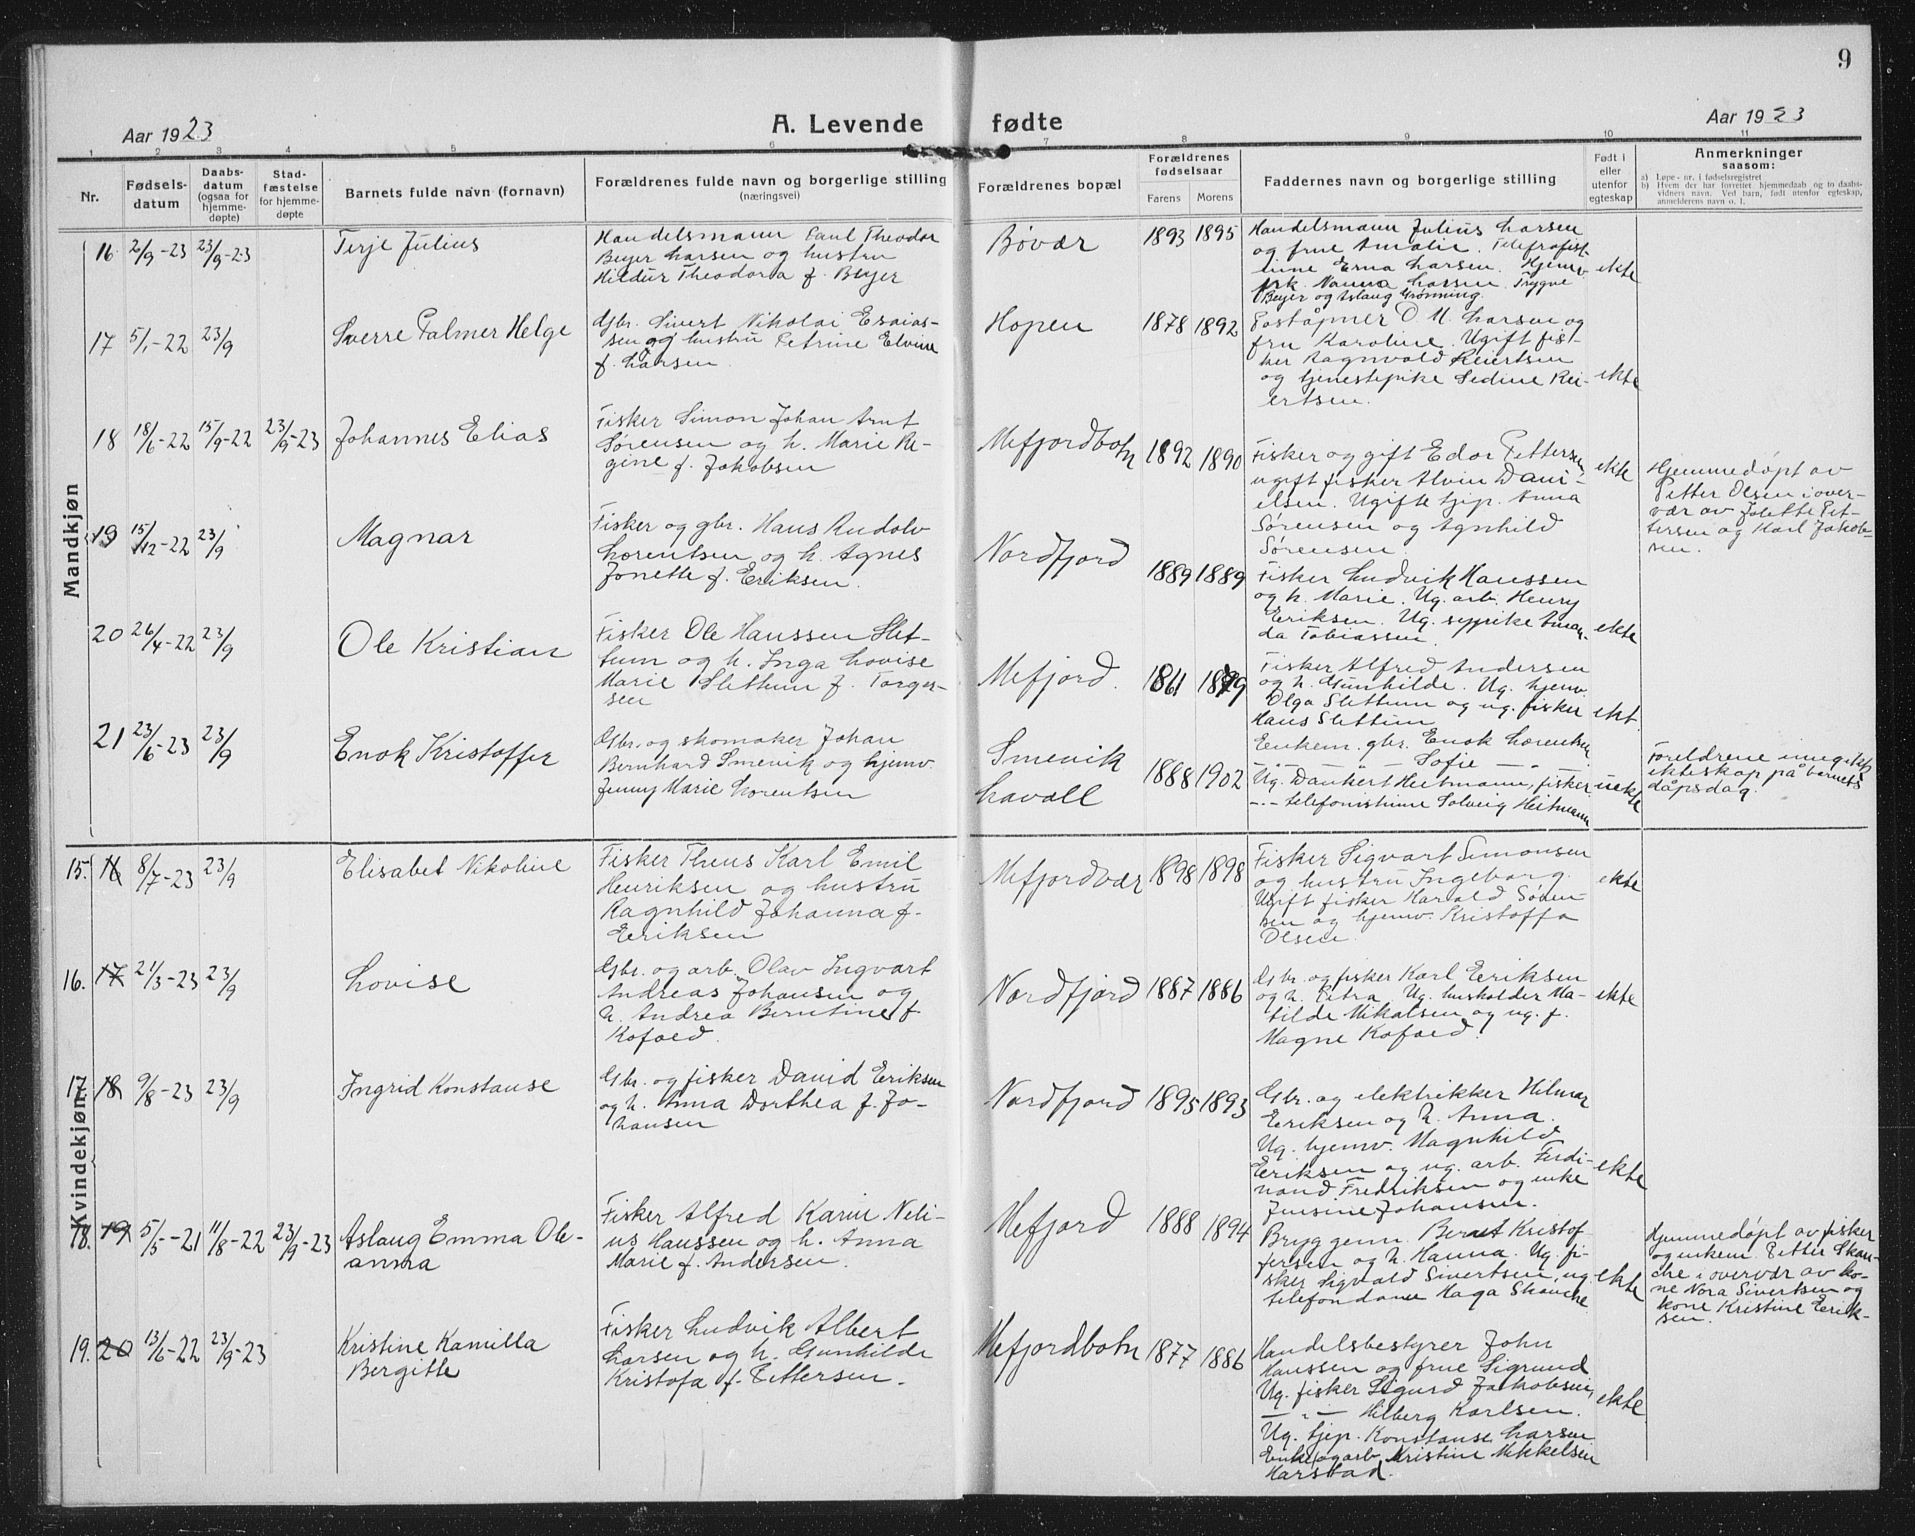 9
Aar 1923
A. Levende fødte
Aar 1923
1 2 3 4 5 6 7 8 9 10 11
Nr.
Fødsels-
datum
Daabs-
datum
(ogsaa for
hjemme-
døpte)
Stad-
fæstelse
for hjemme-
døpte
Barnets fulde navn (fornavn)
Forældrenes fulde navn og borgerlige stilling
(næringsvei)
Forældrenes bopæl
Forældrenes
fødselsaar
Farens Morens
Faddernes navn og borgerlige stilling
Født i
eller
utenfor
egteskap
Anmerkninger
saasom:
a) Løpe-nr. i fødselsregistret
b) Hvem der har forrettet hjemmedaab og to daabs-
vidners navn. Ved barn, født utenfor egteskap,
anmelderens navn o. l.
Mandkjøn
16 2/9-23 23/9-23
Terje Julius
Handelsmann Paul Theodor
Beyer Larsen og hustru
Hildur Theodora f. Beyer
Bøvær
1893 1895
Handelsmann Julius Larsen
og frue Amalie. Telefrafist-
inne Erna Larsen. Hjemv.
frk. Nanna Larsen. Trygve
Beyer og Aslaug Grønning.
ekte
17 5/1-22 23/9
Sverre Palmer Helge
Gbr. Sivert Nikolai Esaias-
sen og hustru Petrine Elvine
f. Larsen.
Hopen
1878 1892
Poståpner O. M. Larsen og
fru Karoline. Ugift fis-
ker Ragnvald Reiertsen
og tjenestepike Sedine Rei-
ertsen.
ekte
18 18/6-22 15/9-22 23/9-23
Johannes Elias
Fisker Simon Johan Arnt
Sørensen og h. Marie Re-
gine f. Jakobsen
Mefjordbotn
1892 1890
Fisker og gift Edor Pettersen,
ugift fisker Alvin Dani-
elsen. Ugifte tjp. Anna
Sørensen og Agnhild
Sørensen.
ekte
Hjemmedøpt av
Petter Olsen i over-
vær av Jolette Pet-
tersen og Karl Jakob-
sen.
19 15/12-22 23/9
Magnar
Fisker og gbr. Hans Rudolv
Lorentsen og h. Agnes
Jonette f. Eriksen.
Nordfjord
1889 1889
Fisker Ludvik Hanssen
og h. Marie. Ug. arb. Henry
Eriksen. Ug. sypike Aman-
da Tobiassen
ekte
20 26/4-22 23/9
Ole Kristian
Fisker Ole Hanssen Slet-
tum og h. Inga Lovise
Marie Slettum f. Torger-
sen
Mefjord.
1861
Fisker Alfred Andersen
og h. Gunhilde. Ug. hjemv.
Olga Slettum og ug. fisker
Hans Slettum
ekt.
21 23/6-23 23/9
Enok Kristoffer
Gbr. og skomaker Johan
Bernhard Smevik og hjemv.
Jenny Marie Lorentsen
Smevik
Lavoll
1888 1902
Enkem. gbr. Enok Lorentsen
— " — Sofie — " —
Ug. Dankert Heitmann, fisker
- " - telefonistinne Solveig Heitmann
uekte
Foreldrene inngikk
ekteskap på barnets
dåpsdag.
Kvindekjøn
15. 16 8/7-23 23/9
Elisabet Nikoline
Fisker Theus Karl Emil
Henriksen og hustru
Ragnhild Johanna f.
Eriksen
Mefjordvær
1898 1898
Fisker Sigvart Simonsen
og hustru Ingeborg.
Ugift fisker Harald Søren-
sen og hjemv. Kristoffa
Olsen.
ekte
16. 17 21/3-23 23/9
Lovise
Gbr. og arb. Olav Ingvart
Andreas Johansen og
h. Andrea Berntine f.
Kofoed.
Nordfjord
1887 1886
Gbr. og fisker Karl Eriksen
og h. Petra. Ug. husholder Ma-
tilde Mikalsen og ug. f.
Magne Kofoed.
ekte
17. 18 9/8-23 23/9
Ingrid Konstanse
Gbr. og fisker David Eriksen
og h. Anna Dorthea f. Jo-
hansen
Nordfjord
1895 1893
Gbr. og elektrikker Hilmar
Eriksen og h. Anna.
Ug. hjemv. Magnhild
Eriksen og ug. arb. Ferdi-
nand Fredriksen og enke
Jensine Johansen.
ekte
18. 19 5/5-21 11/8-22 23/9-23
Aslaug Emma Ole-
anna
Fisker Alfred Karin Neli-
us Hanssen og h. Anna
Marie f. Andersen.
Mefjord
1888 1894
Bryggem. Bernt Kristof-
fersen og h. Hanna. Ug. fi-
sker Sigvald Sivertsen, ug.
telefondame Haga Skanche
ekte
Hjemmedøpt av fisker
og enkem. Petter Skan-
che i overvær av ko-
ne Nora Sivertsen og
kone Kristine Erik-
sen.
19. 20 13/6-22 23/9-23
Kristine Kamilla
Bergitte
Fisker Ludvik Albert
Larsen og h. Gunhilde
Kristofa f. Pettersen.
Mefjordbotn
1877 1886
Handelsbestyrer John
Hanssen og frue Sigrund
Ug. fisker Sigurd Jakobsen,
— " — Hilberg Karlsen.
Ug. tjp. Konstanse Larsen
Enke og arb. Kristine Mikkelsen
Harstad.
ekte